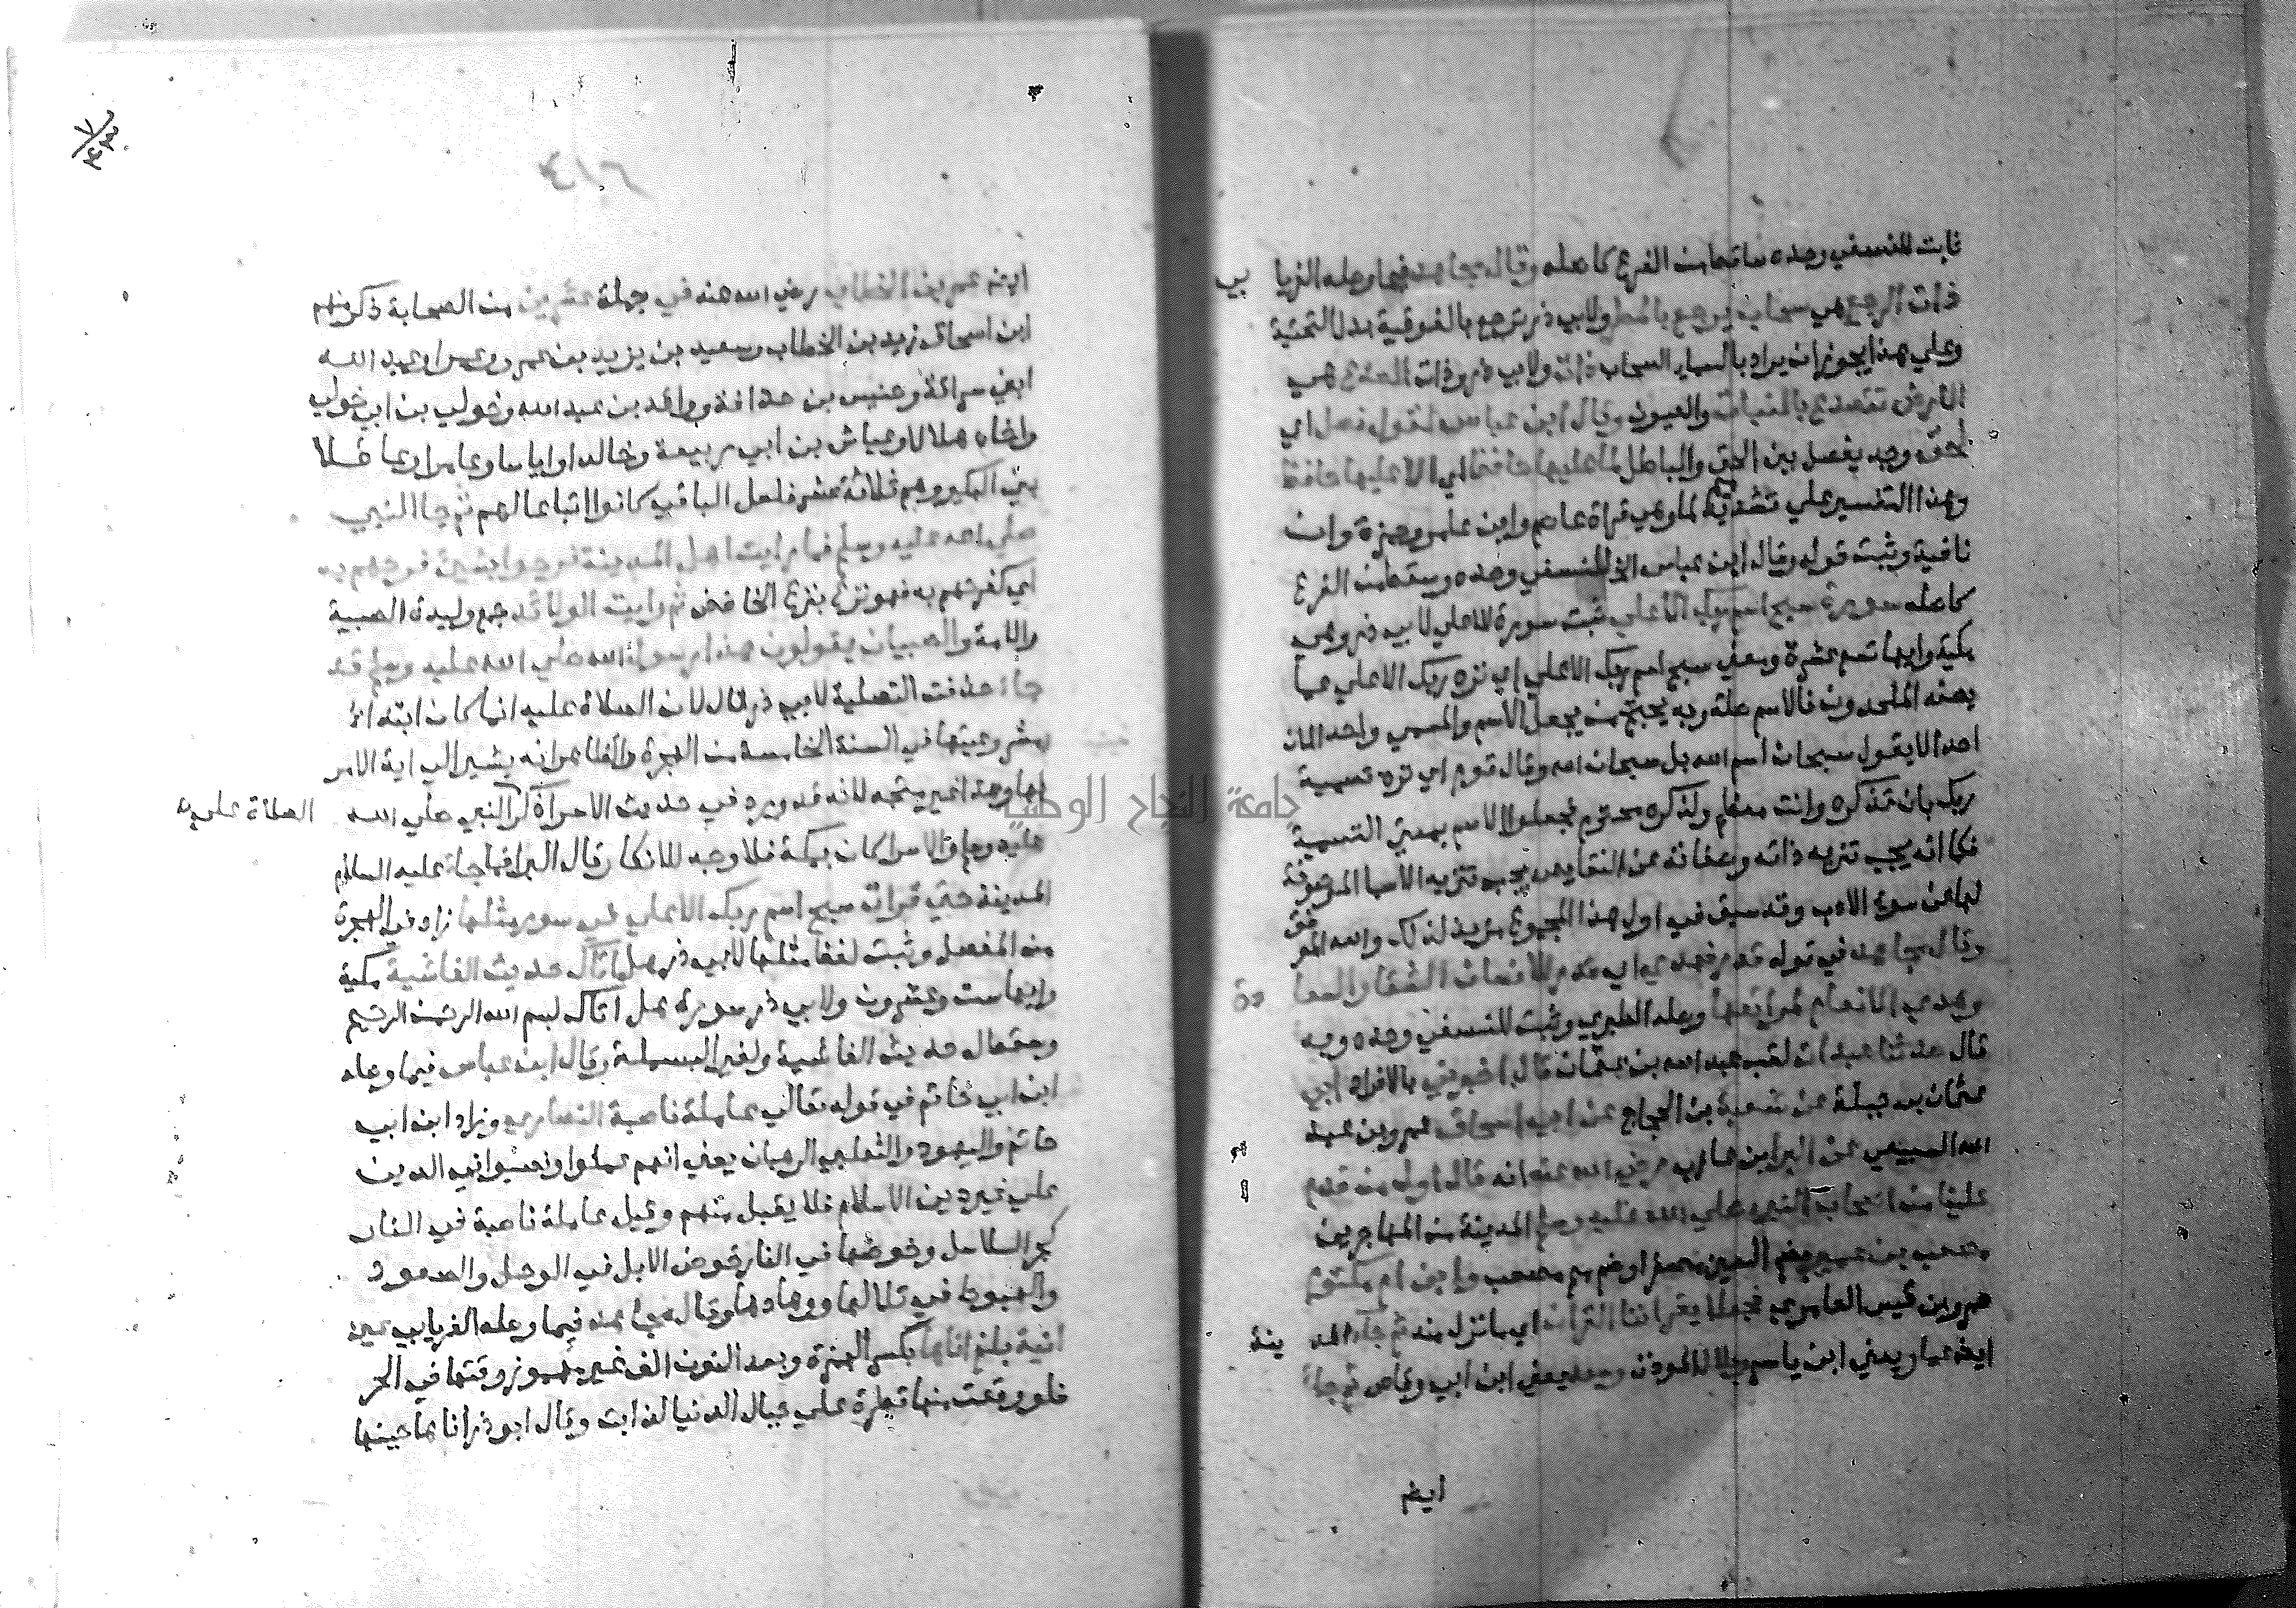 ثابت للنسفي وحده ساقط من الفرع كاصله وقال مجاهد فيما وصله الفريا بي
ذات الرجع هي سحاب يرجع بالمطر ولابي ذر ترجع بالفوقية بدل التحتية
وعلي هذا يجوز ان يراد بالسماء السحاب ذات ولابي ذر وذات الصدع هي
الارض تتصدع بالنبات والعيون وقال ابن عباس لقول فصل اي
لحق وجد يفصل بين الحق والباطل لما عليها حافظ اي الا عليها حافظ
وهذا التفسير علي تشديد لما وهي قراة عاصم وابن عامر وحمزة وان
نافية وثبت قوله وقال ابن عباس الخ للنسفي وحده وسقط من الفرع
كاصله سورة سبح اسم ربك الاعلي ثبت سورة الاعلي لابي ذر وهي
مكية وايها تسع عشرة ومعني سبح اسم ربك الاعلي اي نزه ربك الاعلي عما
يصفه الملحدون فالاسم صلة وبه يحتج من يجعل الاسم والمسمي واحد الان
احدا لا يقول سبحان اسم الله بل سبحان الله وقال قوم اي نزه تسمية
ربك بان تذكره وانت معظم ولذكره محترم فجعلوا الاسم بمعني التسمية
فكما انه يجب تنزيه ذاته وصفاته عن النقايص يجب تنزيه الاسما الموضوعة
لها عن سوء الادب وقد سبق في اول هذا المجموع مزيد لذلك والله الموفق
وقال مجاهد في قوله قدر فهدي اي قدر للانسان الشقا والسعا دة
وهدي الانعام لمراتعها وصله الطبري وثبت للنسفي وحده وبه
قال حدثنا عبدان لقب عبد الله بن عثمان قال اخبرني بالافراد ابي
عثمان بن جبلة عن شعبة بن الحجاج عن ابي اسحاق عمرو بن عبد
الله السبيعي عن البرا بن عازب رضي الله عنه انه قال اول من قدم
علينا من اصحاب النبي صلي الله عليه وسلم المدينة من المهاجرين
مصعب بن عمير بضم العين مصغرا وضم ميم مصعب وابن ام مكتوم
عمرو بن قيس العامري فجعلا يقراننا القران اي ما نزل منه ثم جاء المد ينة
ايضا عمار يعني ابن ياسر وبلال المؤذن وسعد يعني ابن ابي وقاص ثم جاء
ايضا
٤١٦
ايضا عمر بن الخطاب رضي الله عنه في جملة عشرين من الصحابة ذكر منهم
ابن اسحاق زيد بن الخطاب وسعيد بن يزيد بن عمرو وعمرا وعبد الله
ابني سراقة وخنيس بن حذافة وواقد بن عبد الله وخولي بن ابي خولي
واخاه هلالا وعياش بن ابي ربيعة وخالدا واياسا وعامرا وعاقلا
بني البكير وهم ثلاثة عشر فلعل الباقي كانوا اتباعا لهم ثم جا النبي
صلي الله عليه وسلم فما رايت اهل المدينة فرحوا بشي فرحهم به
اي كفرحهم به فهو نزع بنزع الخافض ثم رايت الولائد جمع وليدة الصبية
والامة والصبيان يقولون هذا رسول الله صلي الله عليه وسلم قد
جاء حذفت التصلية لابي ذر قال لان الصلاة عليه انما كان ابتداء
مشروعيتها في السنة الخامسة من الهجرة والظاهر انه يشير الي اية الامر
بها وهذا غير متجه لانه قد ورد في حديث الاسراء ذكر النبي صلي الله
الصلاة علي
عليه وسلم والاسرا كان بمكة فلا وجه للانكار قال البرا فما جاء عليه السلام
المدينة حتي قرات سبح اسم ربك الاعلي في سور مثلها زاد في الهجرة
من المفصل وثبت لفظ مثلها لابي ذر هل اتاك حديث الغاشية مكية
وايها ست وعشرون ولابي ذر سورة هل اتاك بسم الله الرحمن الرحيم
وسقط له حديث الغاشية ولغيره البسملة وقال ابن عباس فيما وصله
ابن ابي حاتم في قوله تعالي عاملة ناصبة النصاري وزاد ابن ابي
حاتم واليهود والثعلبي الرهبان يعني انهم عملوا ونصبوا في الدين
علي غير دين الاسلام فلا يقبل منهم وقيل عاملة ناصبة في النار
كجر السلاسل وخوضها في النار خوض الابل في الوحل والصعود
والهبوط في تلالها ووهادها وقال مجاهد فيما وصله الفريابي عين
انية بلغ اناها بكسر الهمزة وبعد النون الف غير مهموز وقتها في الحر
فلو وقعت منها قطرة علي جبال الدنيا لذابت وقال ابو ذر اناها حينها
جامعة النجاح الوطنية